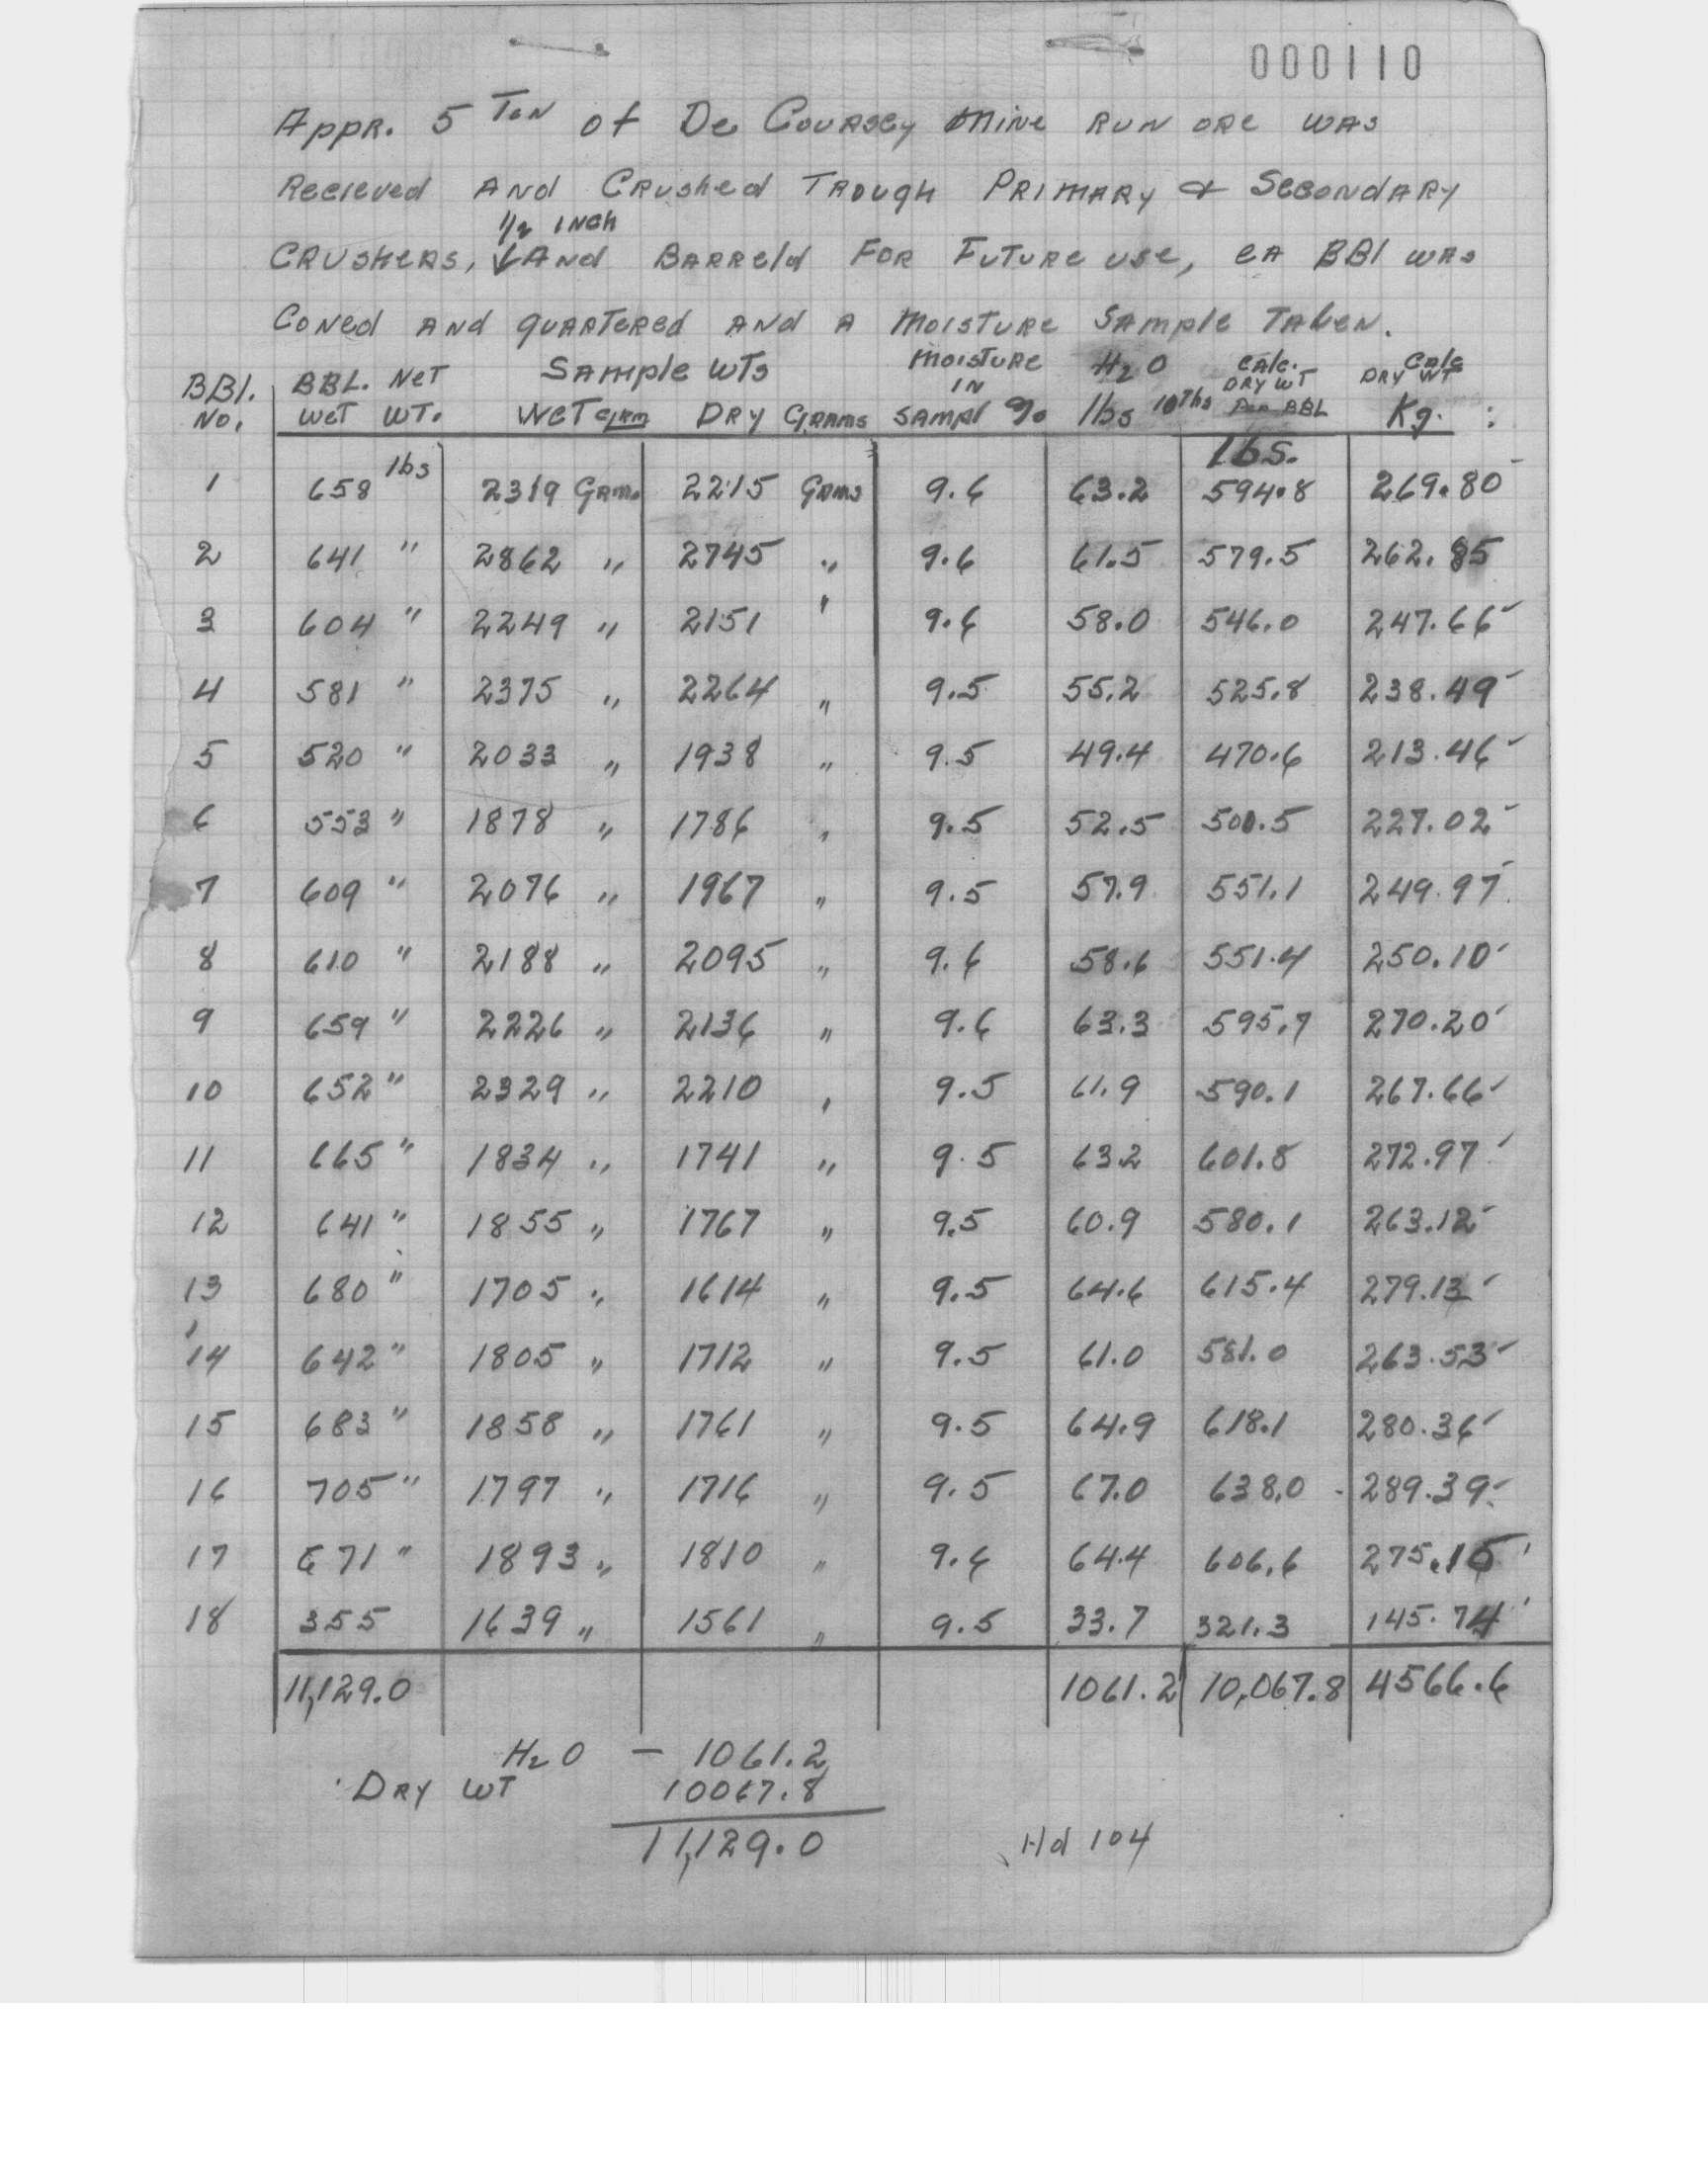 000110
Appr. 5 Ton of De Coursey Mine Run ore was
Recieved and Crushed Trough Primary & Secondary
1/2 inch
Crushers, ↓ And Barreld For Future use, ea BBl was
Coned and quartered and a moisture Sample Taken.
BBl. No. BBL. Net Wet WT. Sample WTs Wet Grm Dry Grams Moisture in Sampl % H2O lbs 10ths Calc. Dry WT Per BBL lbs. Calc Dry WT Kg. :
1 658 lbs 2319 Grms 2215 Grms 9.6 63.2 594.8 269.80
2 641 " 2862 " 2745 " 9.6 61.5 579.5 262.85
3 604 " 2249 " 2151 ' 9.6 58.0 546.0 247.66
4 581 " 2375 " 2264 " 9.5 55.2 525.8 238.49
5 520 " 2033 " 1938 " 9.5 49.4 470.6 213.46
6 553 " 1878 " 1786 " 9.5 52.5 500.5 227.02
7 609 " 2076 " 1967 " 9.5 57.9 551.1 249.97
8 610 " 2188 " 2095 " 9.6 58.6 551.4 250.10
9 659 " 2226 " 2136 " 9.6 63.3 595.7 270.20
10 652 " 2329 " 2210 " 9.5 61.9 590.1 267.66
11 665 " 1834 " 1741 " 9.5 63.2 601.8 272.97
12 641 " 1855 " 1767 " 9.5 60.9 580.1 263.12
13 680 " 1705 " 1614 " 9.5 64.6 615.4 279.13
14 642 " 1805 " 1712 " 9.5 61.0 581.0 263.53
15 683 " 1858 " 1761 " 9.5 64.9 618.1 280.36
16 705 " 1797 " 1716 " 9.5 67.0 638.0 289.39
17 671 " 1893 " 1810 " 9.6 64.4 606.6 275.15
18 355 1639 " 1561 " 9.5 33.7 321.3 145.74
11,129.0 1061.2 10,067.8 4566.6
H2O — 1061.2
Dry WT 10067.8
11,129.0
Hd 104